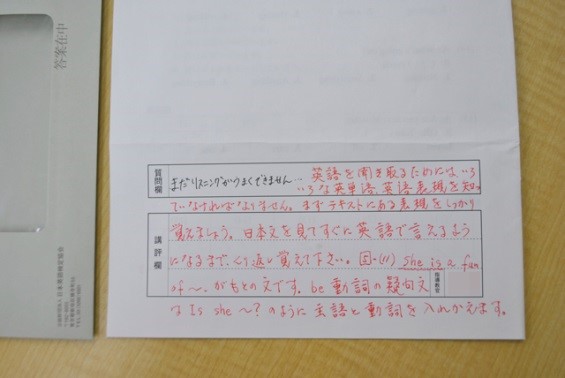 答案在中
質問欄
まだリスニングがうまくできません…
英語を聞き取るためにはいろ
いろな英単語、英語表現を知っ
ていなければなりません。まずテキストにある表現をしっかり
講評欄
覚えましょう。日本文を見てすぐに英語で言えるよう
になるまで、くり返し覚えて下さい。
She is a fan
of ~. がもとの文です。be動詞の疑問文
は Is she ~? のように主語と動詞を入れかえます。